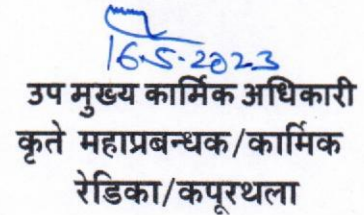 16-5-2023
उप मुख्य कार्मिक अधिकारी
कृते महाप्रबन्धक/कार्मिक
रेडिका/कपूरथला